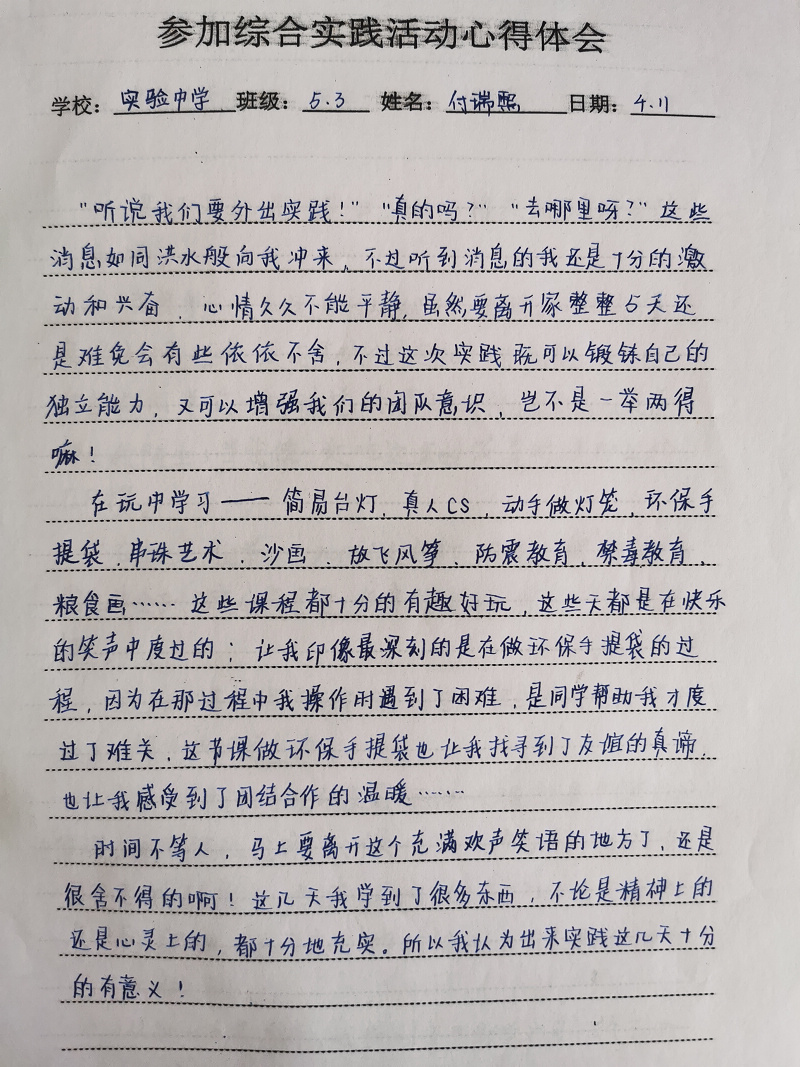 参加综合实践活动心得体会
学校：实验中学 班级：5.3 姓名：付瑞熙 日期：4.11
“听说我们要外出实践！”“真的吗？”“去哪里呀？”这些
消息如同洪水般向我冲来，不过听到消息的我还是十分的激
动和兴奋，心情久久不能平静，虽然要离开家整整5天还
是难免会有些依依不舍，不过这次实践既可以锻铢自己的
独立能力，又可以增强我们的团队意识，岂不是一举两得
嘛！
在玩中学习——简易台灯，真人CS，动手做灯笼，环保手
提袋，串珠艺术、沙画、放飞风筝、防震教育，禁毒教育、
粮食画……这些课程都十分的有趣好玩，这些天都是在快乐
的笑声中度过的；让我印像最深刻的是在做环保手提袋的过
程，因为在那过程中我操作时遇到了困难，是同学帮助我才度
过了难关，这节课做环保手提袋也让我找寻到了友谊的真谛，
也让我感受到了团结合作的温暖……
时间不等人，马上要离开这个充满欢声笑语的地方了，还是
很舍不得的啊！这几天我学到了很多东西，不论是精神上的
还是心灵上的，都十分地充实。所以我认为出来实践这几天十分
的有意义！